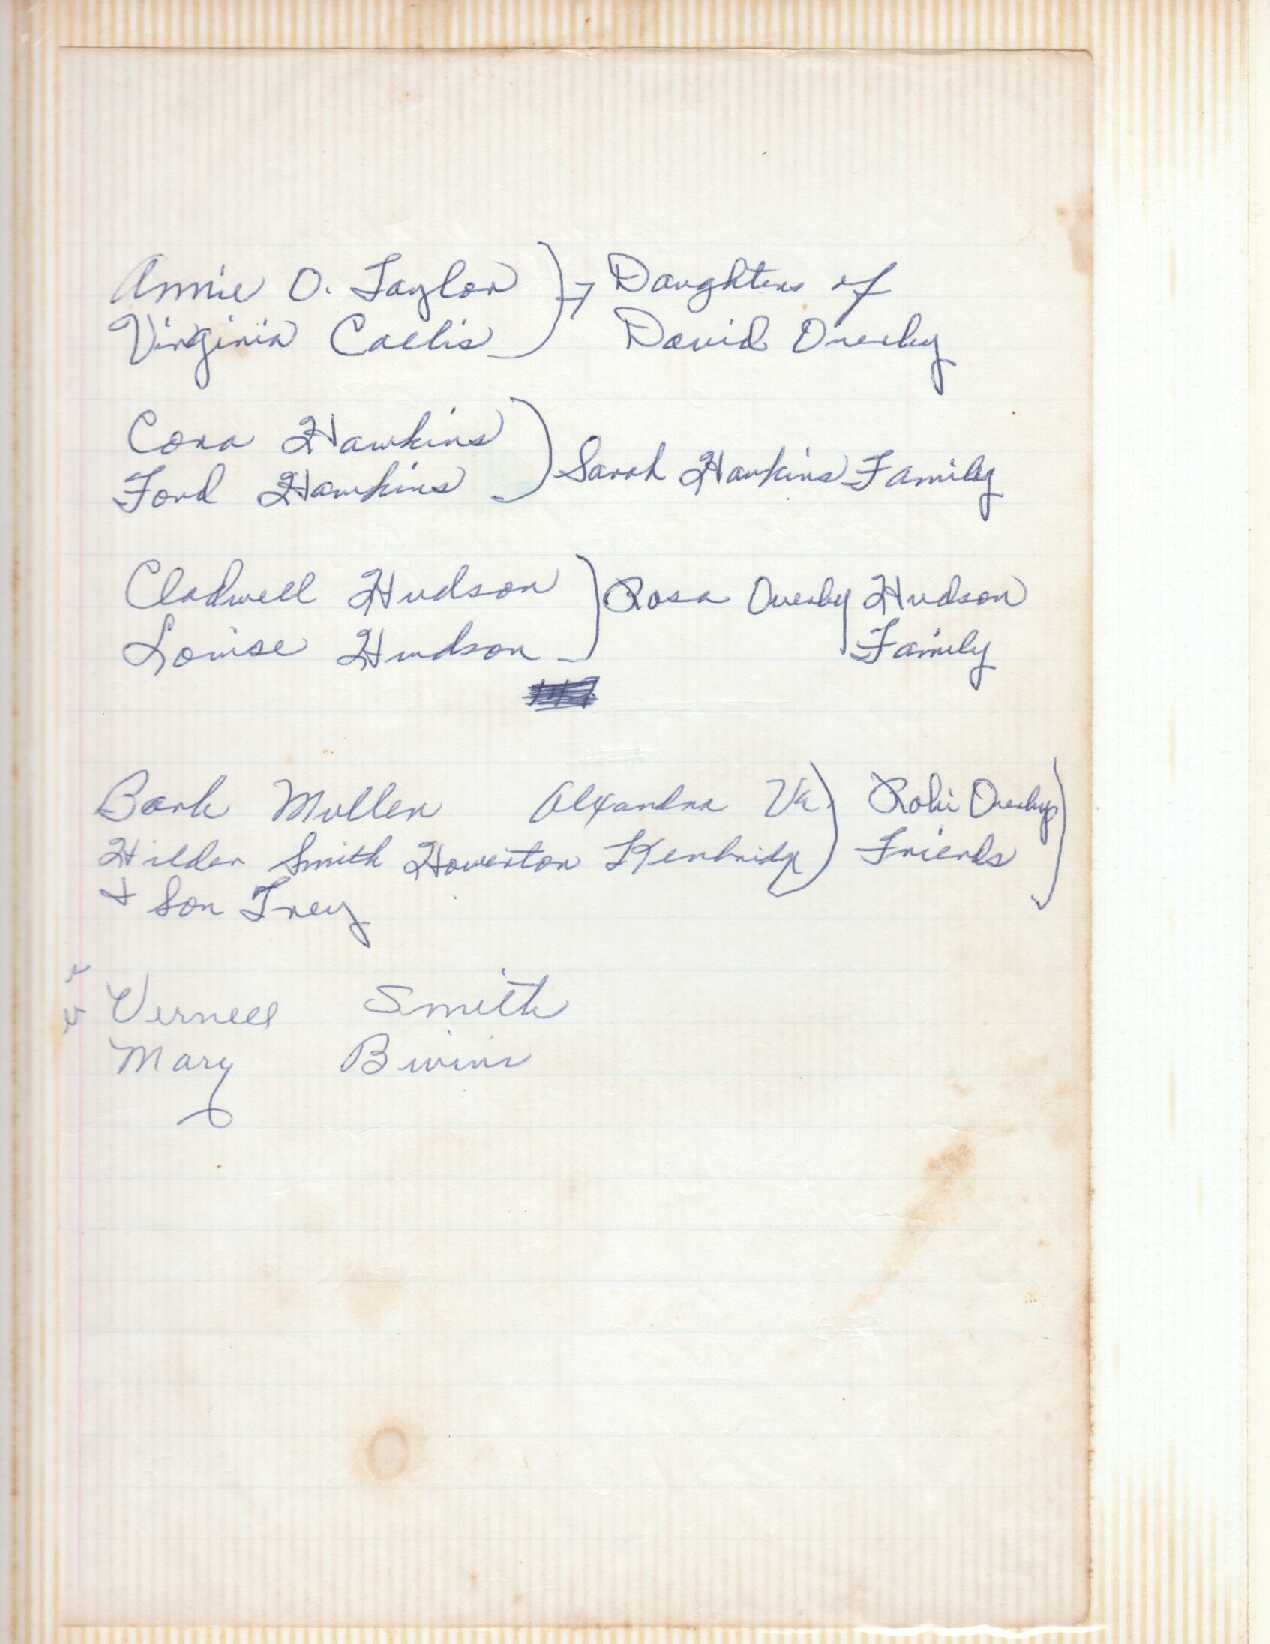 Annie O. Taylor → Daughters of
Virginia Callis David Overby
Cora Hawkins
Ford Hawkins Sarah Hawkins Family
Cladwell Hudson Rosa Overby Hudson
Louise Hudson Family
Bark Mullen Alxandra Va. Robi Overbys
Hilda Smith Howerton Kenbridge Friends
+ Son Trey
Vernell Smith
Mary Bivins